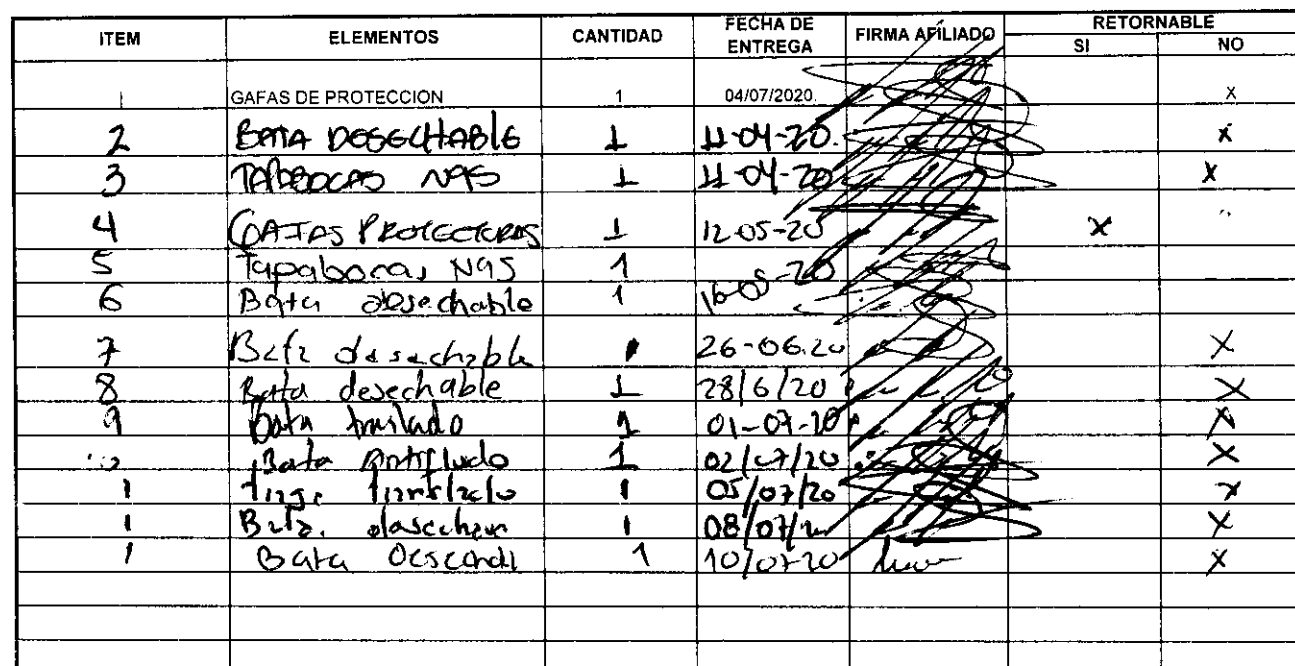 ITEM ELEMENTOS CANTIDAD FECHA DE ENTREGA FIRMA AFILIADO RETORNABLE SI NO
1 GAFAS DE PROTECCION 1 04/07/2020. X
2 BATA DESECHABLE 1 11-04-20. X
3 TAPABOCAS N95 1 11-04-20 X
4 GAFAS PROTECTORAS 1 12-05-20 X
5 Tapabocas N95 1
6 Bata desechable 1 16-05-20
7 Bata desechable 1 26-06.20 X
8 Bata desechable 1 28/6/20 X
9 Bata traslado 1 01-07-20 X
Bata Antifludo 1 02/07/20 X
1 1 05/07/20 X
1 Bata. 1 08/07/20 X
1 Bata 1 10/07-20 X